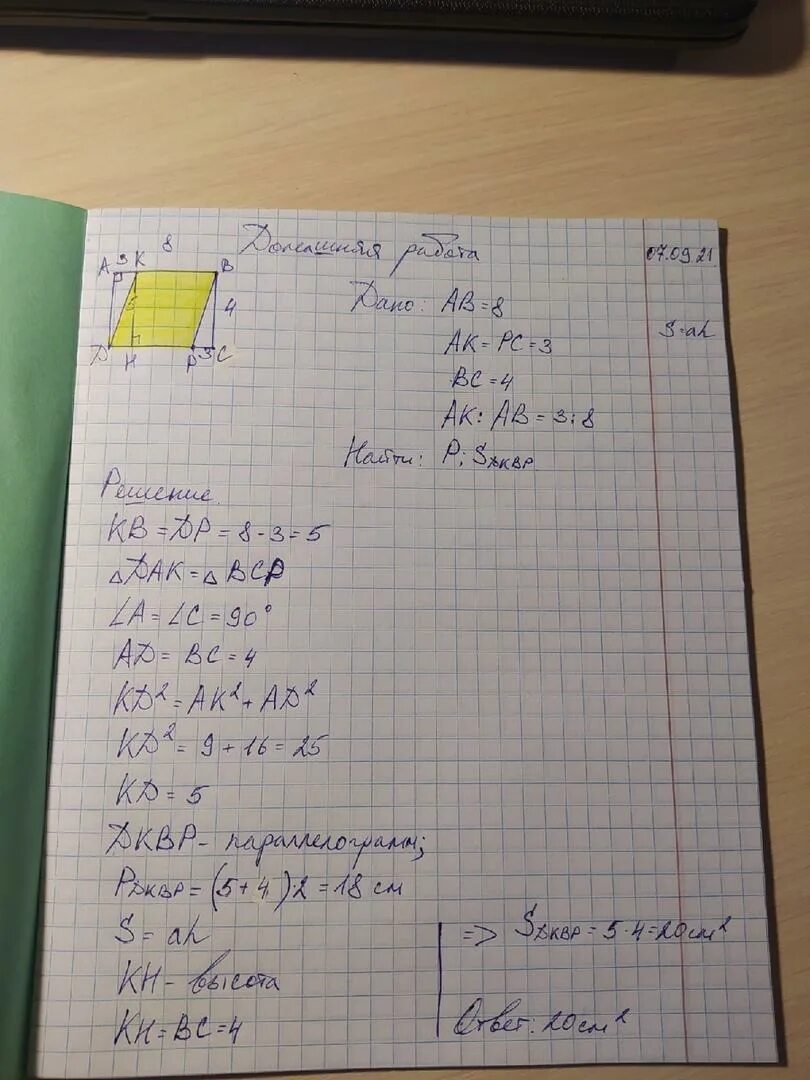 Домашняя работа
07.09.21
8
A 3 K B
5 4
D H P 3 C
Дано: AB=8
S=ah
AK=PC=3
BC=4
AK:AB=3:8
Найти: P; SDKBP
Решение
KB=DP=8-3=5
△DAK=△BCP
∠A=∠C=90°
AD=BC=4
KD²=AK²+AD²
KD²=9+16=25
KD=5
DKBP- параллелограмм;
PDKBP=(5+4)·2=18 см
S=ah
KH- высота
KH=BC=4
=> SDKBP=5·4=20см²
Ответ: 20см²